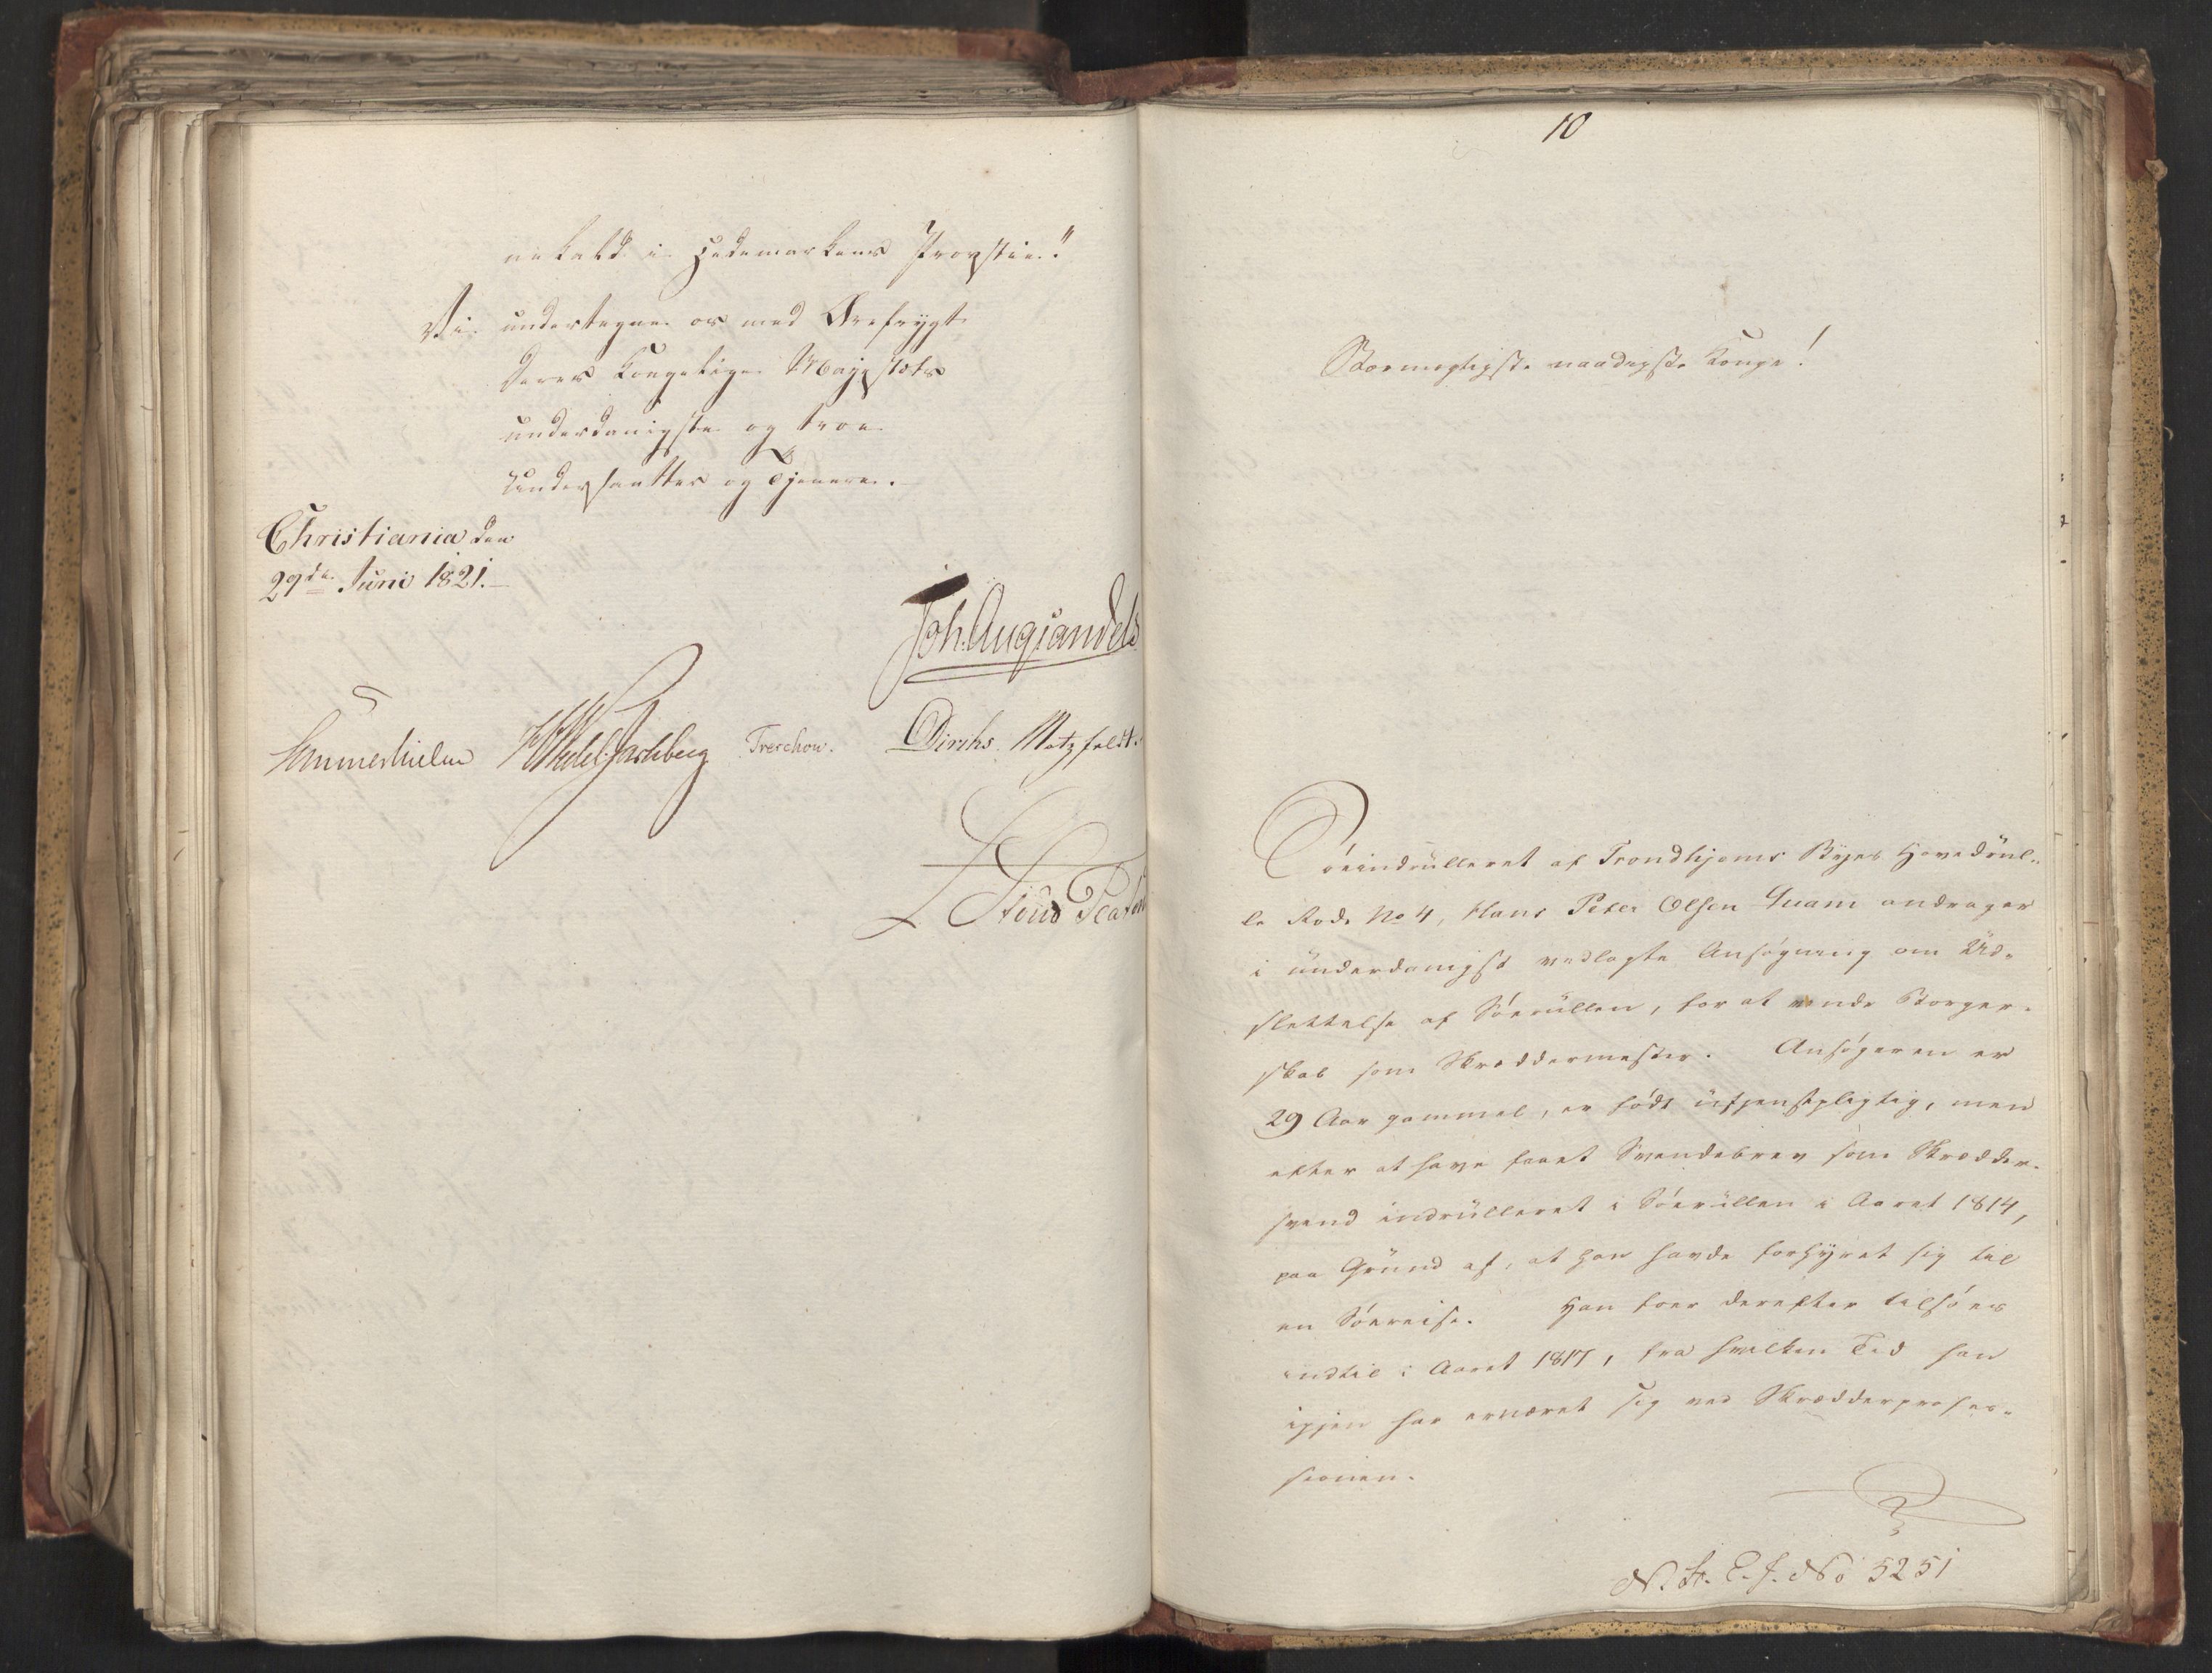 nekald i Hedemarkens Provstie."
Vi undertegne os med Ærefrygt
Deres Kongelige Majestæts
underdanigste og troe
Undersaatter og Tjenere.
Christiania den
29de Juni 1821.
Joh. Aug Sandels
Sommerhielm HWedelJarlsberg Treschow. Diriks. Motzfeldt.
L Stoud Platou
10
Stormægtigste naadigste Konge!
Søeindrulleret af Trondhjems Byes Hovedrul-
le Rode No 4, Hans Peter Olsen Quam andrager
i underdanigst vedlagte Ansøgning om Ud-
slettelse af Søerullen, for at vinde Borger-
skab som Skræddermester. Ansøgeren er
29 Aar gammel, er født utjenstpligtig, men
efter at have faaet Svendebrev som Skrædder-
svend indrulleret i Søerullen i Aaret 1814,
paa Grund af, at han havde forhyret sig til
en Søereise. Han foer derefter tilsøes
indtil i Aaret 1817, fra hvilken Tid han
igjen har ernæret sig ved Skrædderprofes-
sionen.
N. Fr. E. f. No 5251